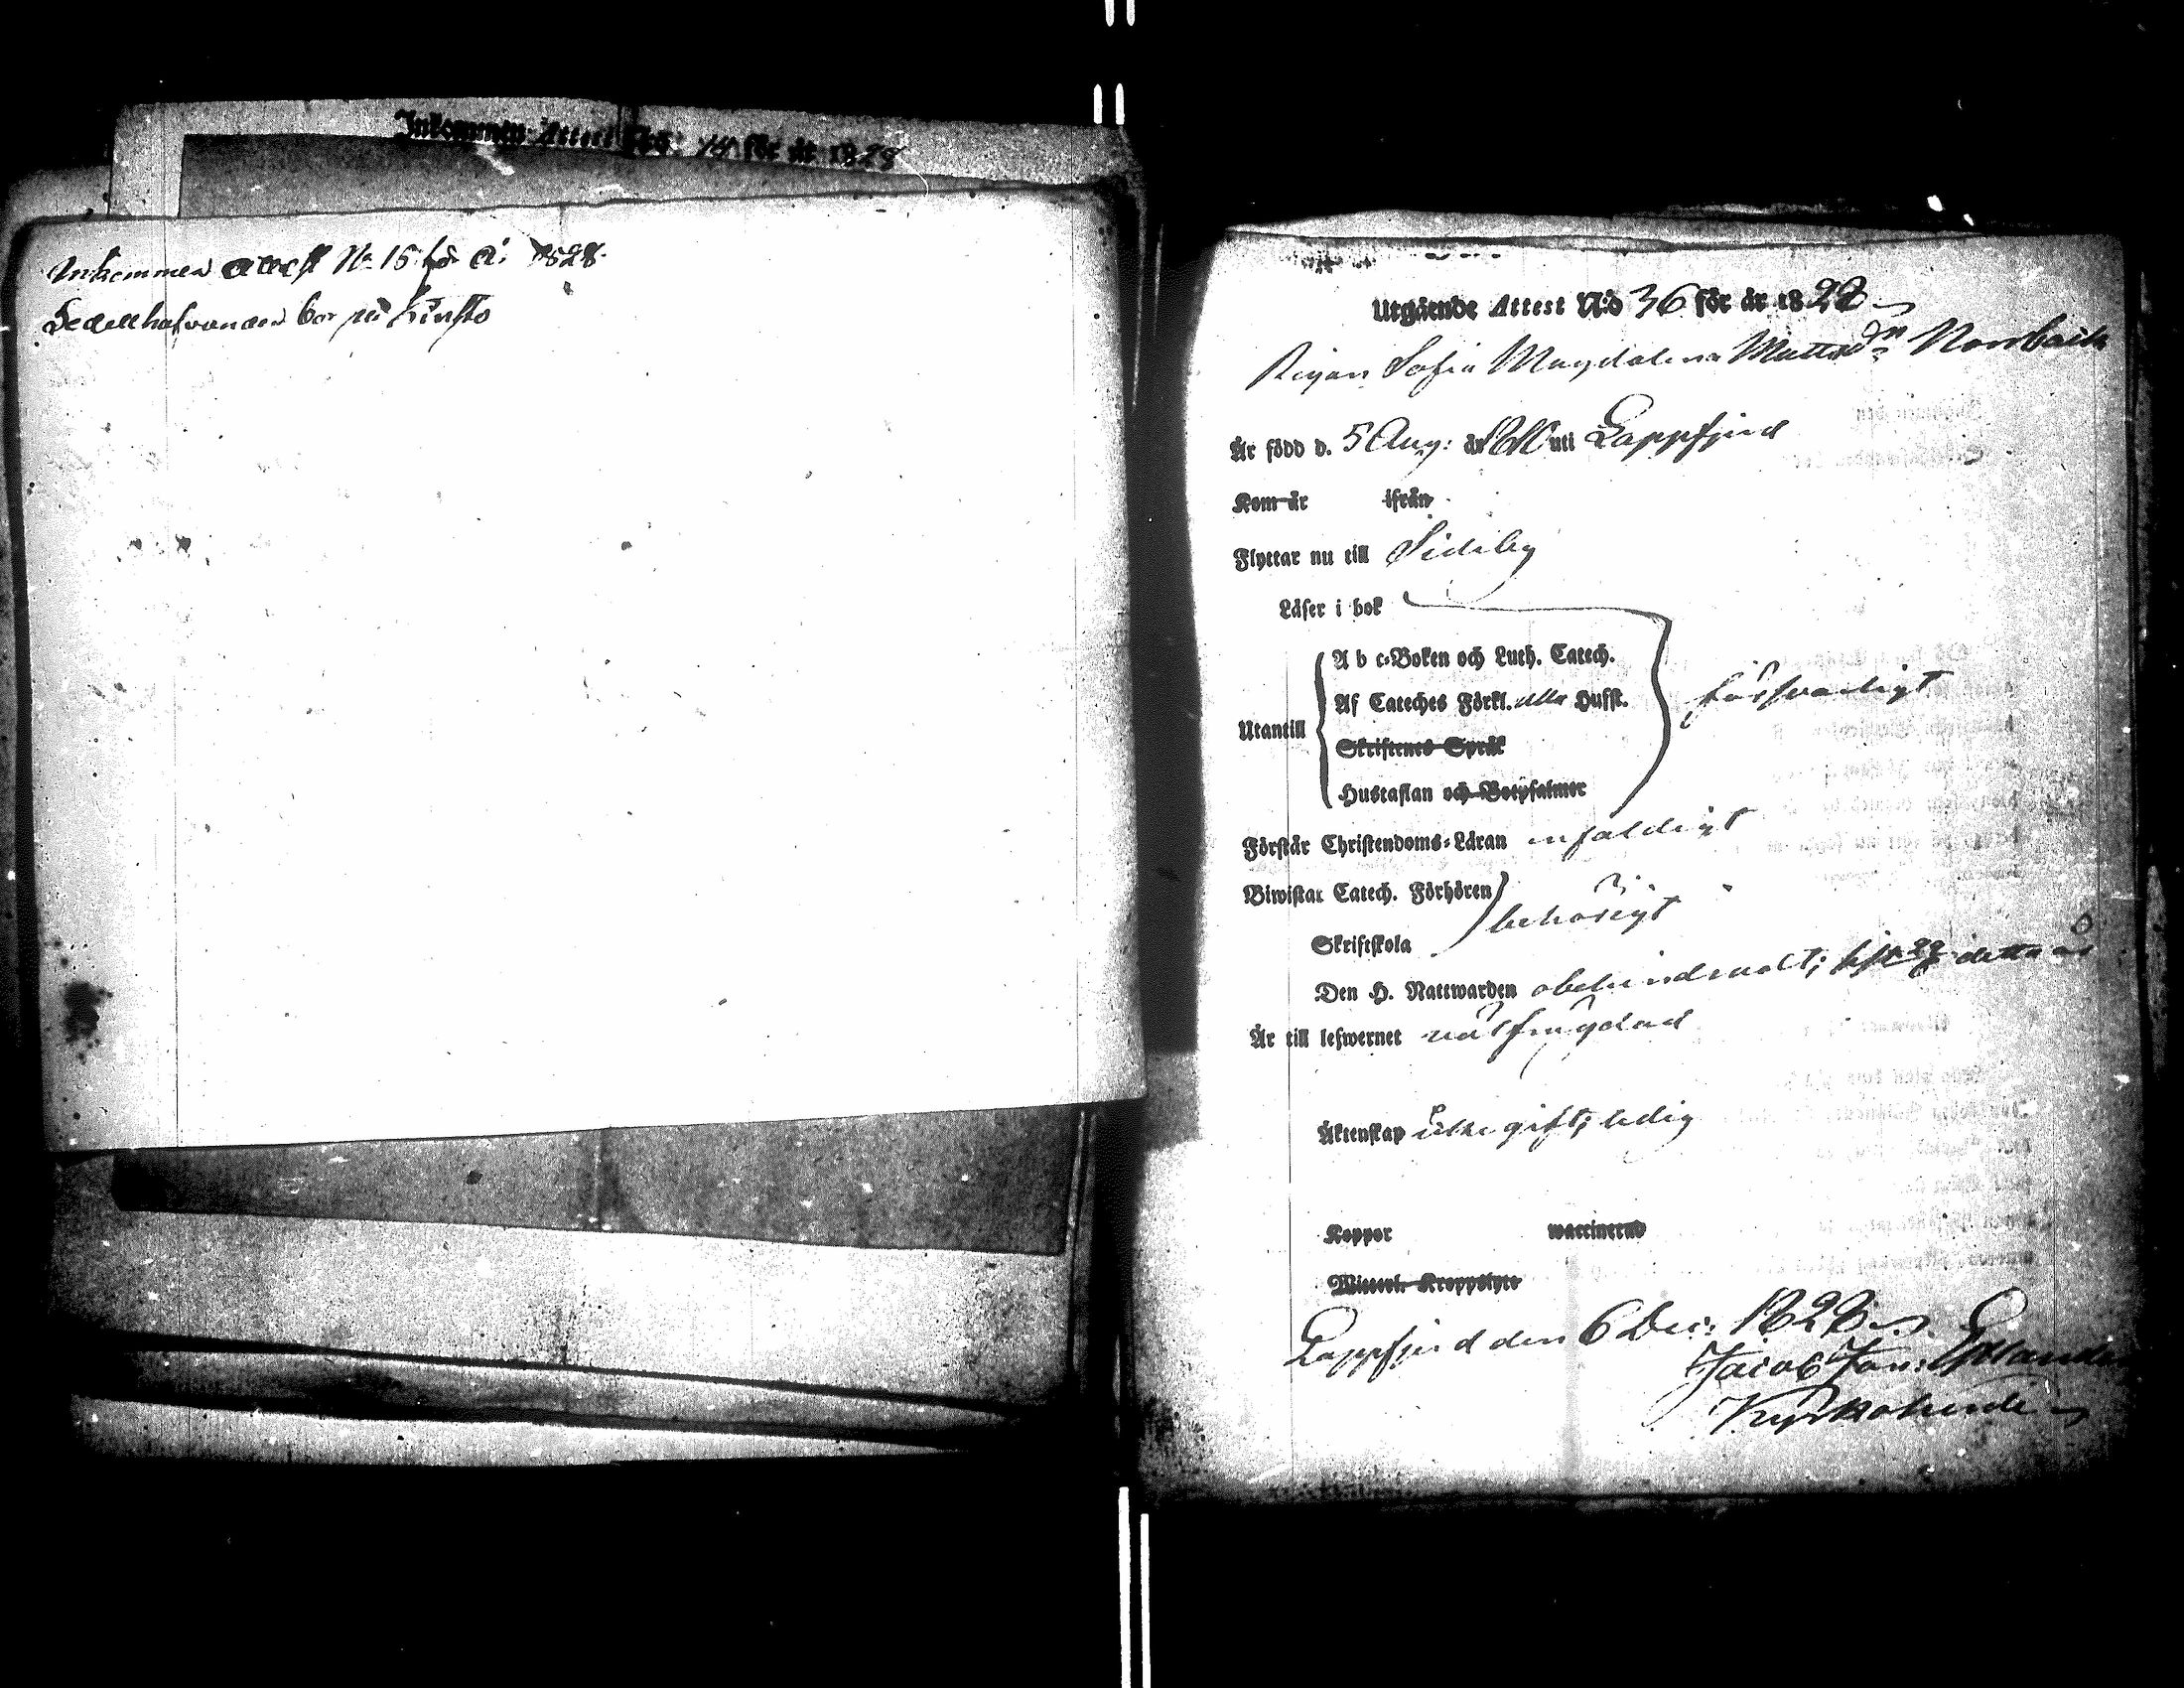 Inkommen Attest N:o 14 för år 1828
Inkommen Attest No 15 för År 1828.
Sedellhafvanden bor på
Utgående Attest N:o 36 för år 1828
Pigan Sofia Magdalena Mattsdr Norrbäck
Är född d. 5 Aug: år 1810 uti Lappfjerd
Kom år ifrån
Flyttar nu till Sideby
Läser i bok
A b c-Boken och Luth. Catech.
Af Cateches Förkl. alla Hufst. försvarligt
Utantill
Skriftenes Språk
Hustaflan och Botpsalmer
Förstår Christendoms-Läran enfaldigt
Biwistar Catech. Förhören
behörigt
Skriftskola
Den H. Nattwarden obehindradt; detta år
Är till lefwernet välfrägdad
Äktenskap icke gift; ledig
Koppor waccinerad
Witterl. Kroppslyte
Lappfjerd den 6 Dec: 1828
Jacob Jon:
Kyrkoherde